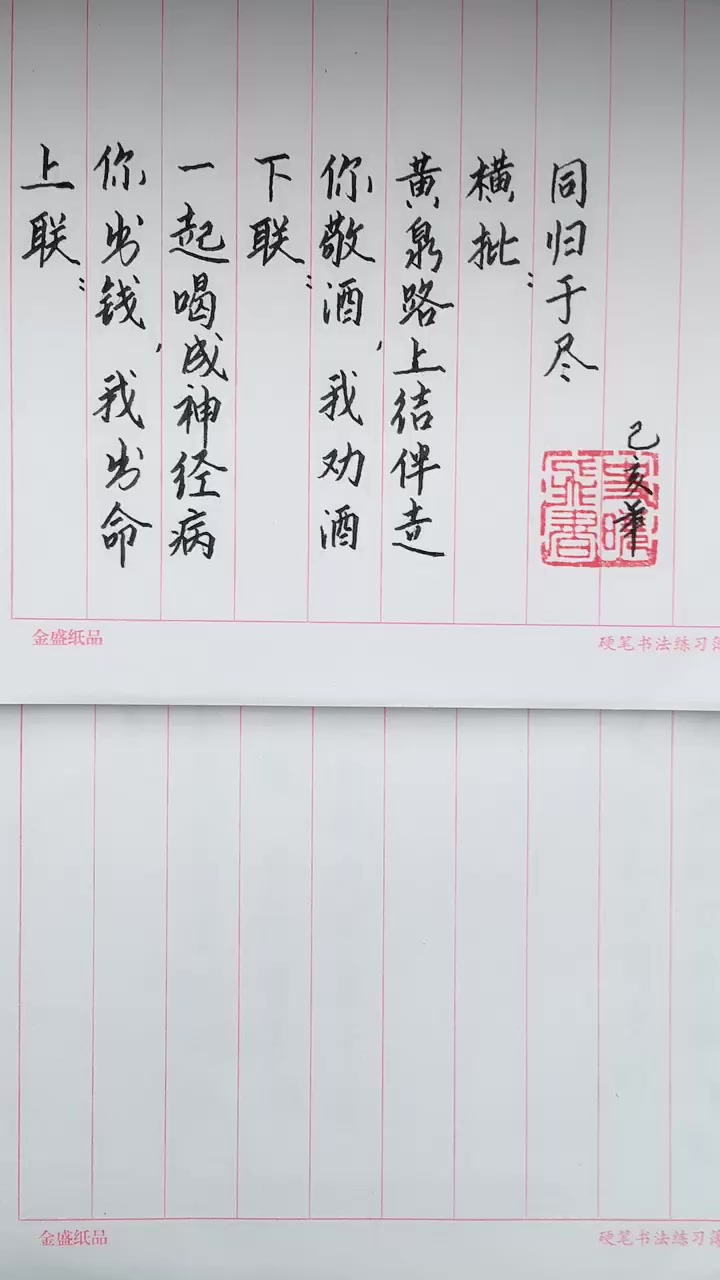 上联：
你出钱，我出命
一起喝成神经病
下联：
你敬酒，我劝酒
黄泉路上结伴走
横批：
同归于尽
己亥
金盛纸品
硬笔书法练习簿
金盛纸品
硬笔书法练习簿